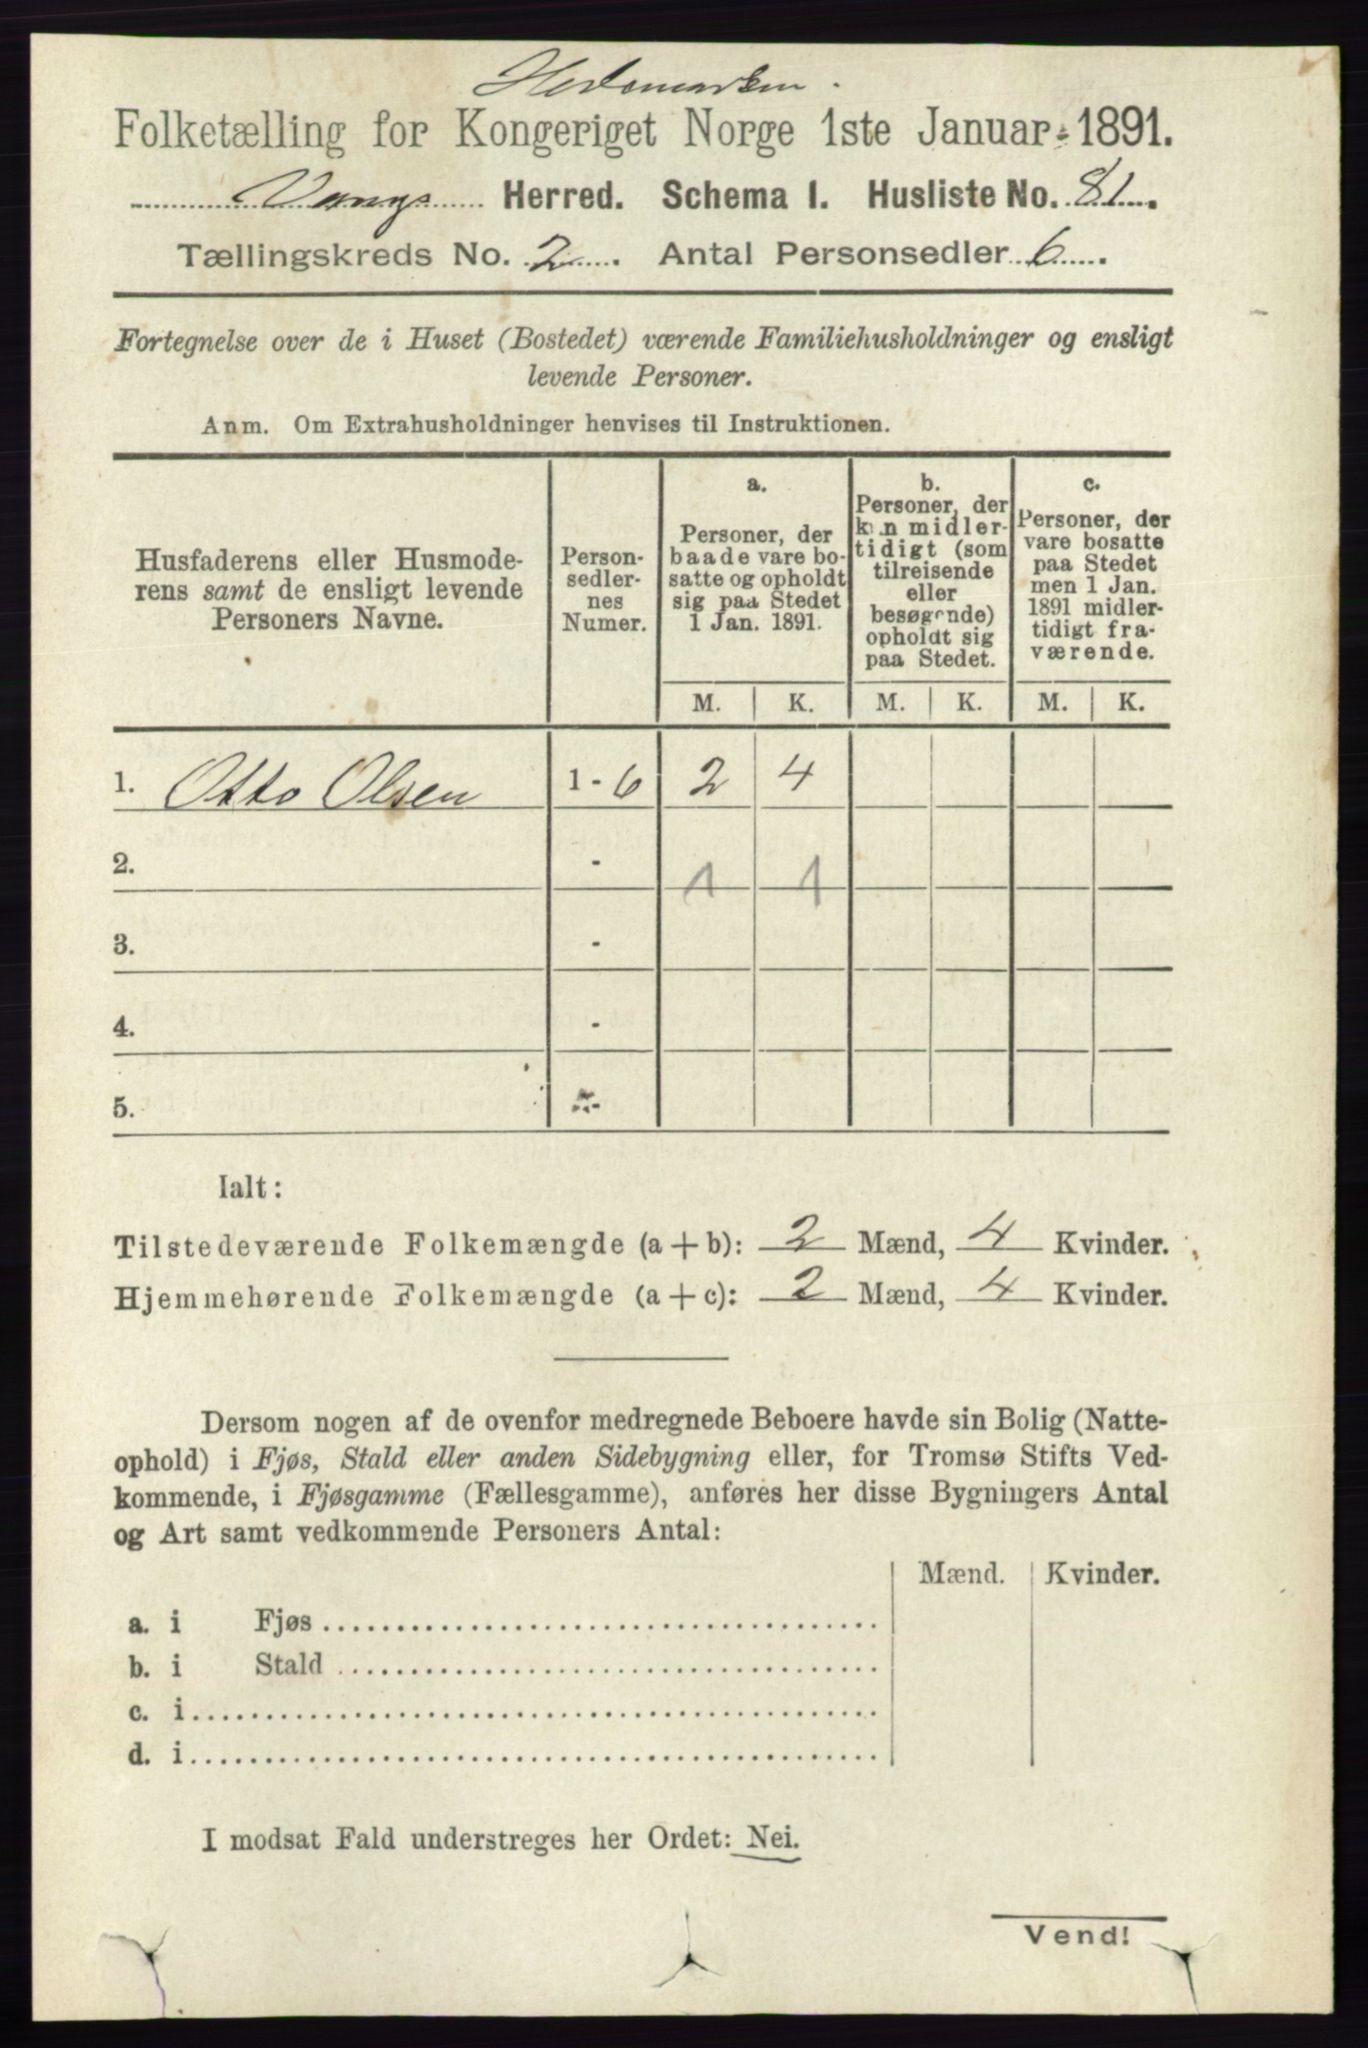 Hedemarken.
Folketælling for Kongeriget Norge 1ste Januar 1891.
Vangs Herred. Schema I. Husliste No. 81.
Tællingskreds No. 2. Antal Personsedler 6.
Fortegnelse over de i Huset (Bostedet) værende Familiehusholdninger og ensligt
levende Personer.
Anm. Om Extrahusholdninger henvises til Instruktionen.
Husfaderens eller Husmode-
rens samt de ensligt levende
Personers Navne.
Person-
sedler-
nes
Numer.
a.
Personer, der
baade vare bo-
satte og opholdt
sig paa Stedet
1 Jan. 1891.
b.
Personer, der
kun midler-
tidigt (som
tilreisende
eller
besøgende)
opholdt sig
paa Stedet.
c.
Personer, der
vare bosatte
paa Stedet
men 1 Jan.
1891 midler-
tidigt fra-
værende.
M. K. M. K. M. K.
1. Otto Olsen 1 - 6 2 4
2. - 1 1
3. -
4. -
5. -
Ialt:
Tilstedeværende Folkemængde (a + b): 2 Mænd, 4 Kvinder.
Hjemmehørende Folkemængde (a + c): 2 Mænd, 4 Kvinder.
Dersom nogen af de ovenfor medregnede Beboere havde sin Bolig (Natte-
ophold) i Fjøs, Stald eller anden Sidebygning eller, for Tromsø Stifts Ved-
kommende, i Fjøsgamme (Fællesgamme), anføres her disse Bygningers Antal
og Art samt vedkommende Personers Antal:
Mænd. Kvinder.
a. i Fjøs
b. i Stald
c. i
d. i
I modsat Fald understreges her Ordet: Nei.
Vend!